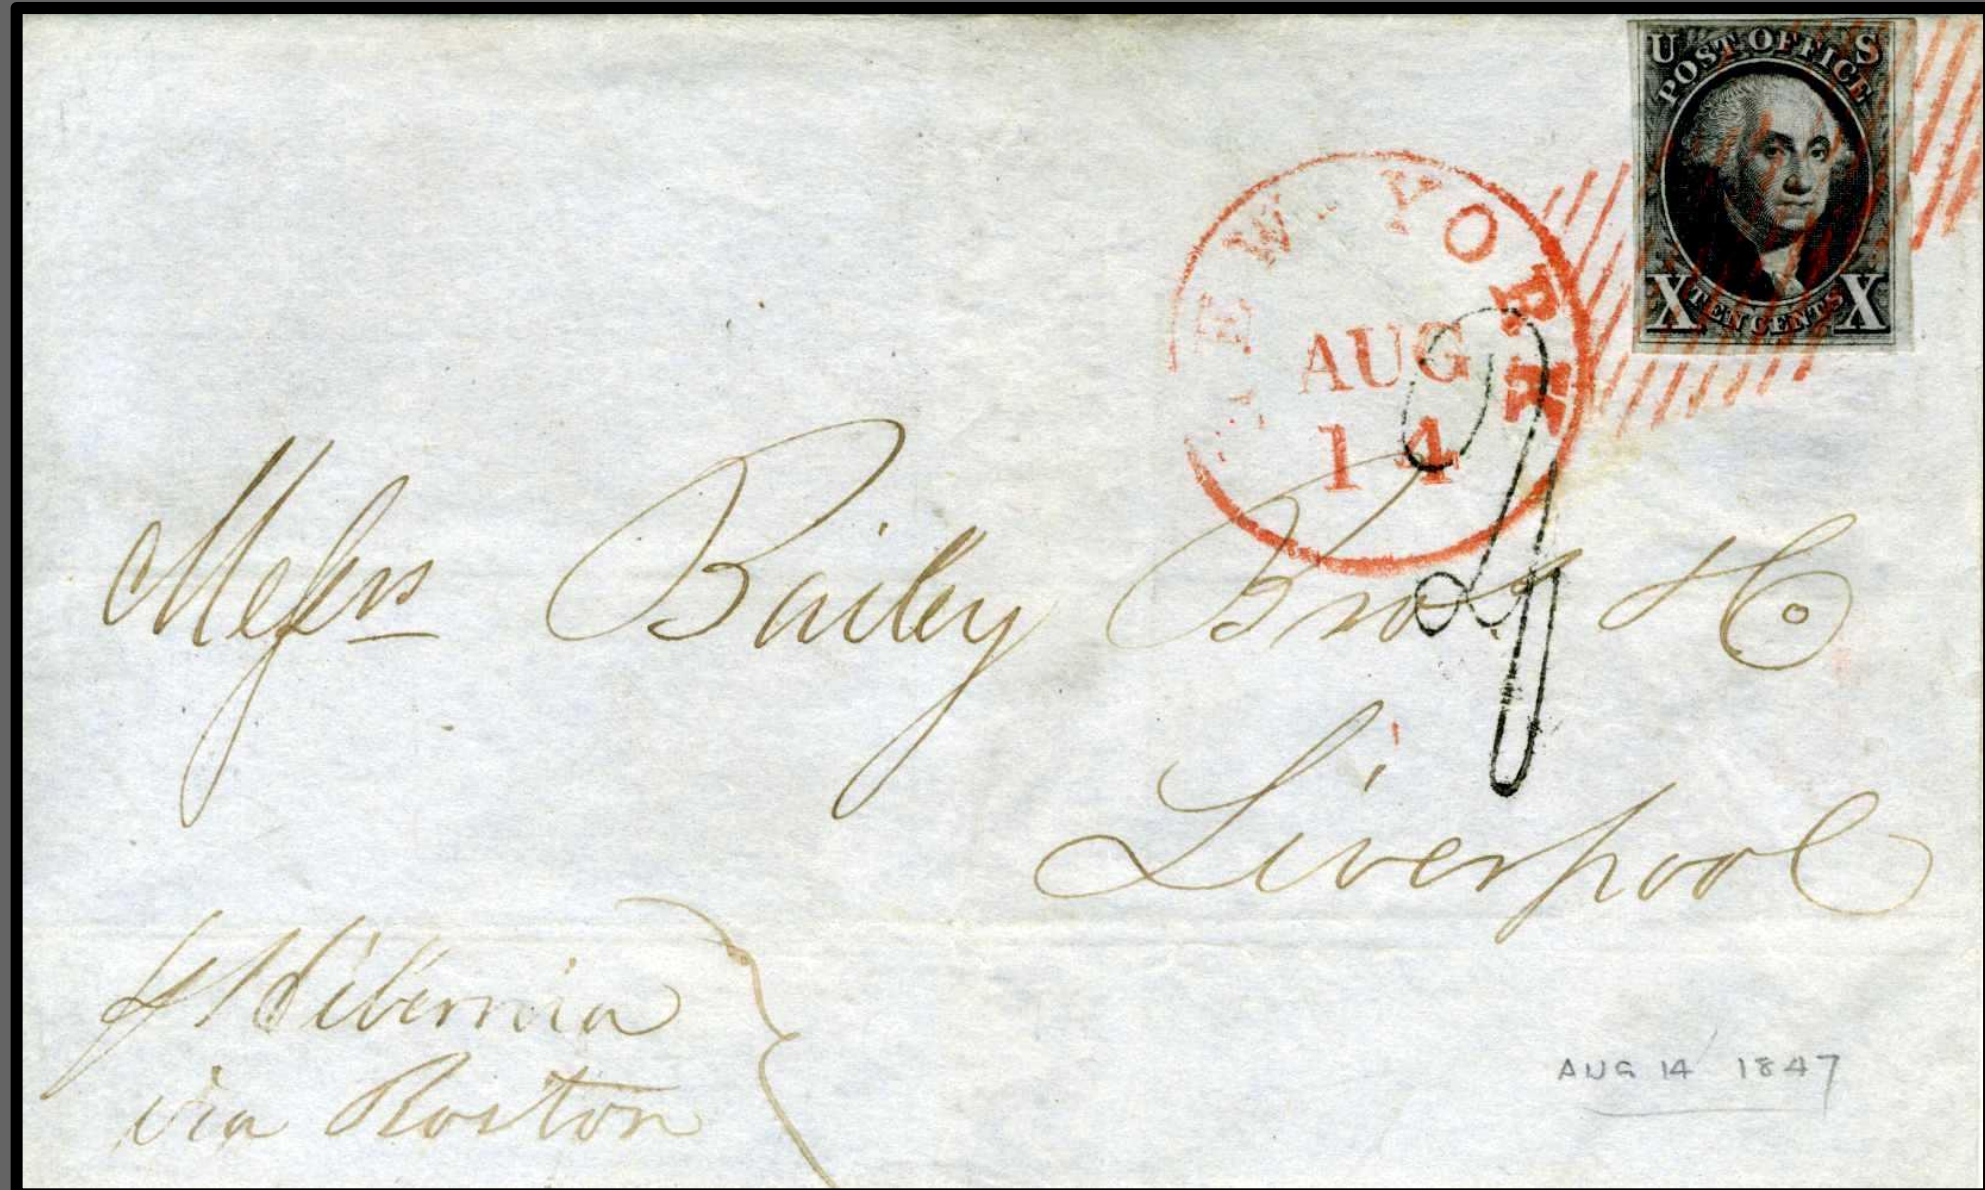 U S
POST OFFICE
X TEN CENTS X
NEW YORK
AUG
14
Messrs Bailey Bros & Co
Liverpool
p Hibernia
via Boston
AUG 14 1847